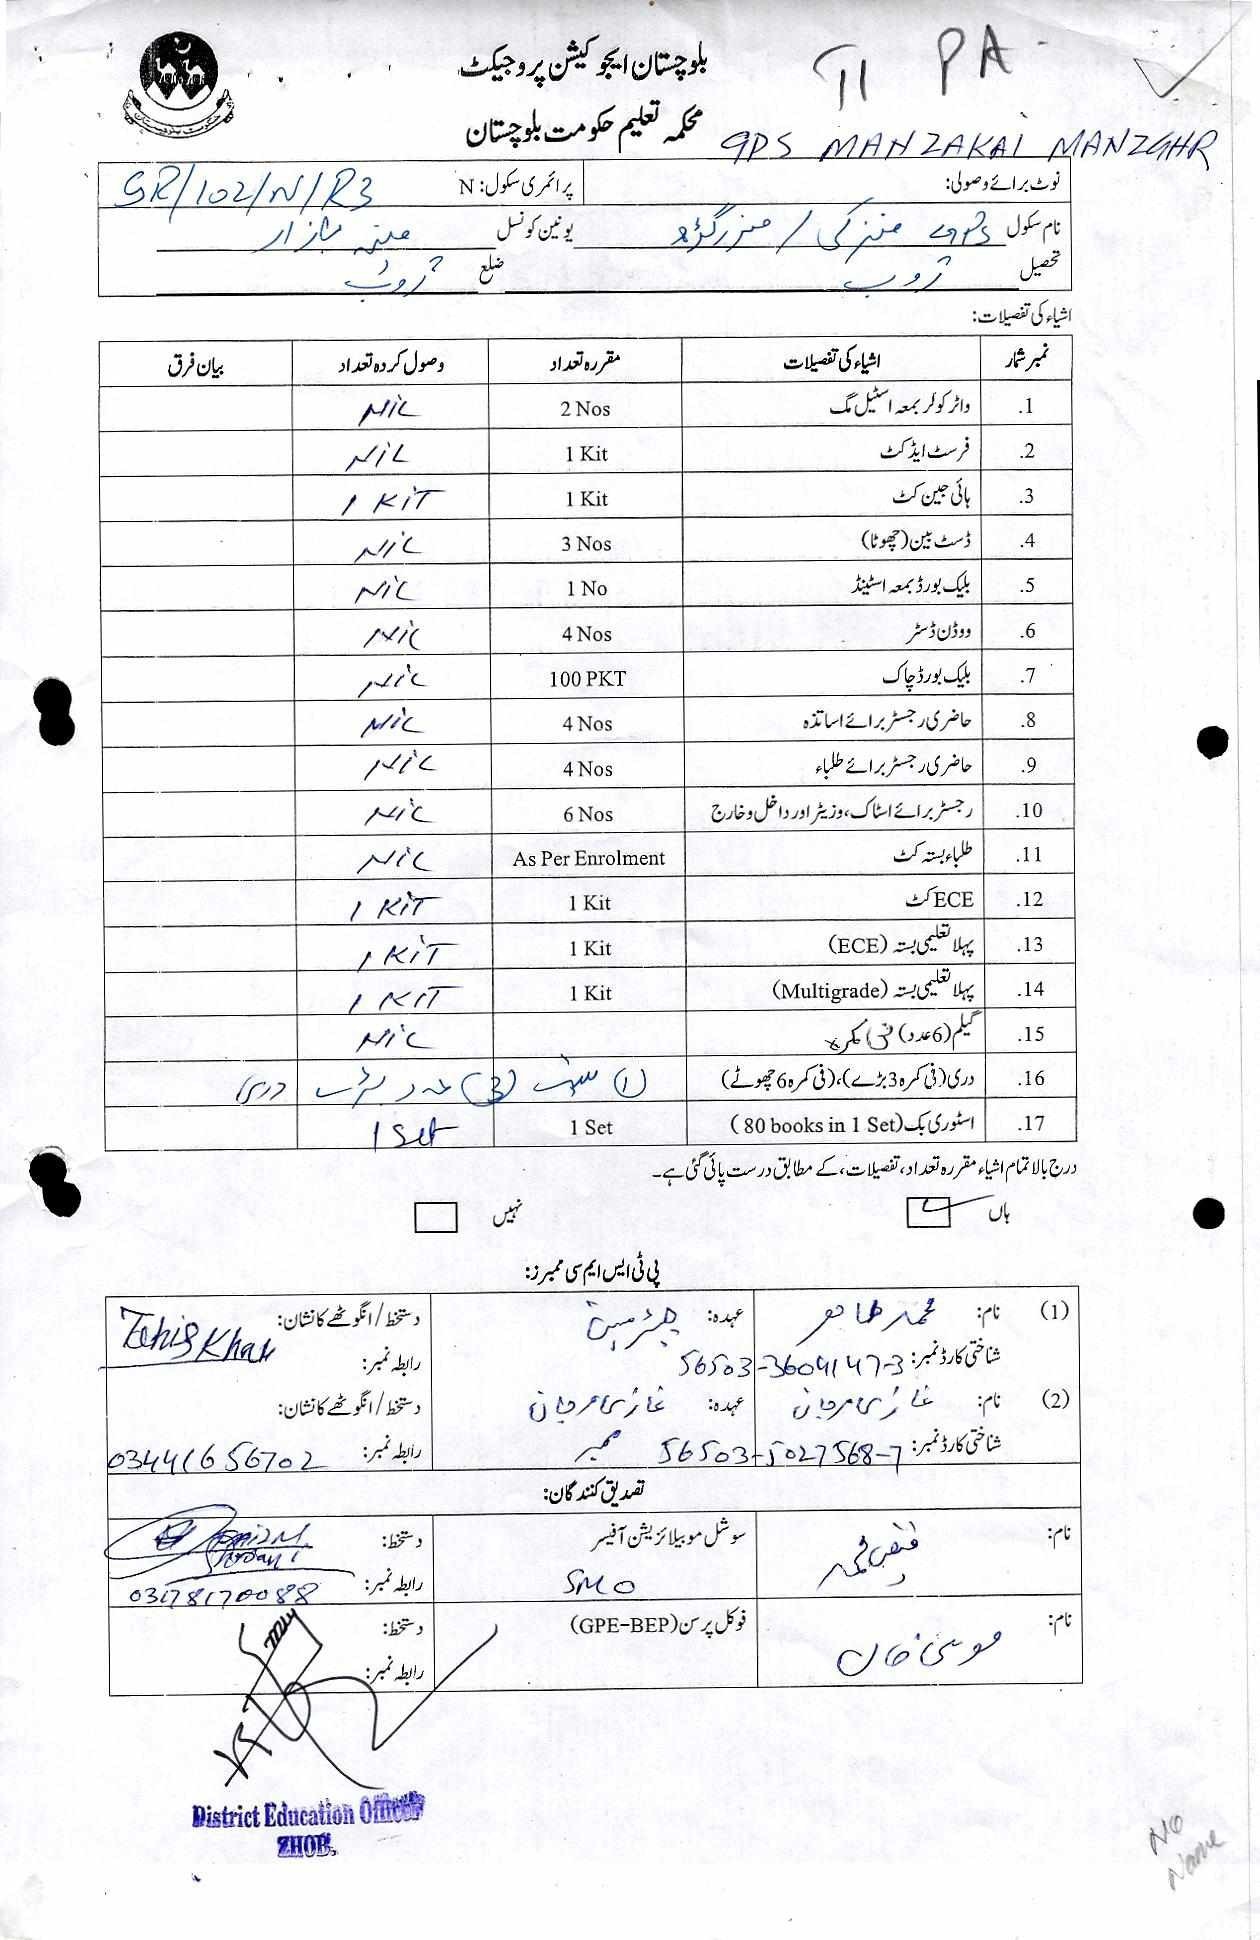 بلوچستان ایجوکیشن پروجیکٹ
PA
محکمہ تعلیم حکومت بلوچستان
GPS MANZAKAI MANZGHR
نوٹ برائے وصولی:
پرائمری سکول: N SR/102/N/R3
نام سکول GPS منزکی / منزرگڑھ یونین کونسل
تحصیل ژوب ضلع ژوب
اشیاء کی تفصیلات:
نمبر شمار اشیاء کی تفصیلات مقررہ تعداد وصول کردہ تعداد بیان فرق
1. واٹر کولر بمعہ اسٹیل مگ 2 Nos NIL
2. فرسٹ ایڈ کٹ 1 Kit NIL
3. ہائی جین کٹ 1 Kit 1 KIT
4. ڈسٹ بین (چھوٹا) 3 Nos NIL
5. بلیک بورڈ بمعہ اسٹینڈ 1 No NIL
6. ووڈن ڈسٹر 4 Nos NIL
7. بلیک بورڈ چاک 100 PKT NIL
8. حاضری رجسٹر برائے اساتذہ 4 Nos NIL
9. حاضری رجسٹر برائے طلباء 4 Nos NIL
10. رجسٹر برائے اسٹاک، وزیٹر اور داخل و خارج 6 Nos NIL
11. طلباء بستہ کٹ As Per Enrolment NIL
12. ECE کٹ 1 Kit 1 KIT
13. پہلا تعلیمی بستہ (ECE) 1 Kit 1 KIT
14. پہلا تعلیمی بستہ (Multigrade) 1 Kit 1 KIT
15. گیلم (6 عدد) فی کمرہ NIL
16. دری (فی کمرہ 3 بڑے)، (فی کمرہ 6 چھوٹے) (1) سیٹ (3) عدد بڑے دری
17. اسٹوری بک (80 books in 1 Set) 1 Set 1 Set
درج بالا تمام اشیاء مقررہ تعداد، تفصیلات، کے مطابق درست پائی گئی ہے۔
ہاں نہیں
پی ٹی ایس ایم سی ممبرز:
(1) نام: محمد طاہر عہدہ: چیئرمین دستخط/انگوٹھے کا نشان: Tahir Khan
شناختی کارڈ نمبر: 56503-3604147-3 رابطہ نمبر:
(2) نام: غازی مرجان عہدہ: غازی مرجان دستخط/انگوٹھے کا نشان:
شناختی کارڈ نمبر: 56503-5027568-7 ممبر رابطہ نمبر: 03441656702
تصدیق کنندگان:
نام: فیض محمد سوشل موبیلائزیشن آفیسر دستخط:
SMO رابطہ نمبر: 03178170088
نام: موسیٰ خان فوکل پرسن (GPE-BEP) دستخط:
رابطہ نمبر:
District Education Officer
ZHOB.
No
Name